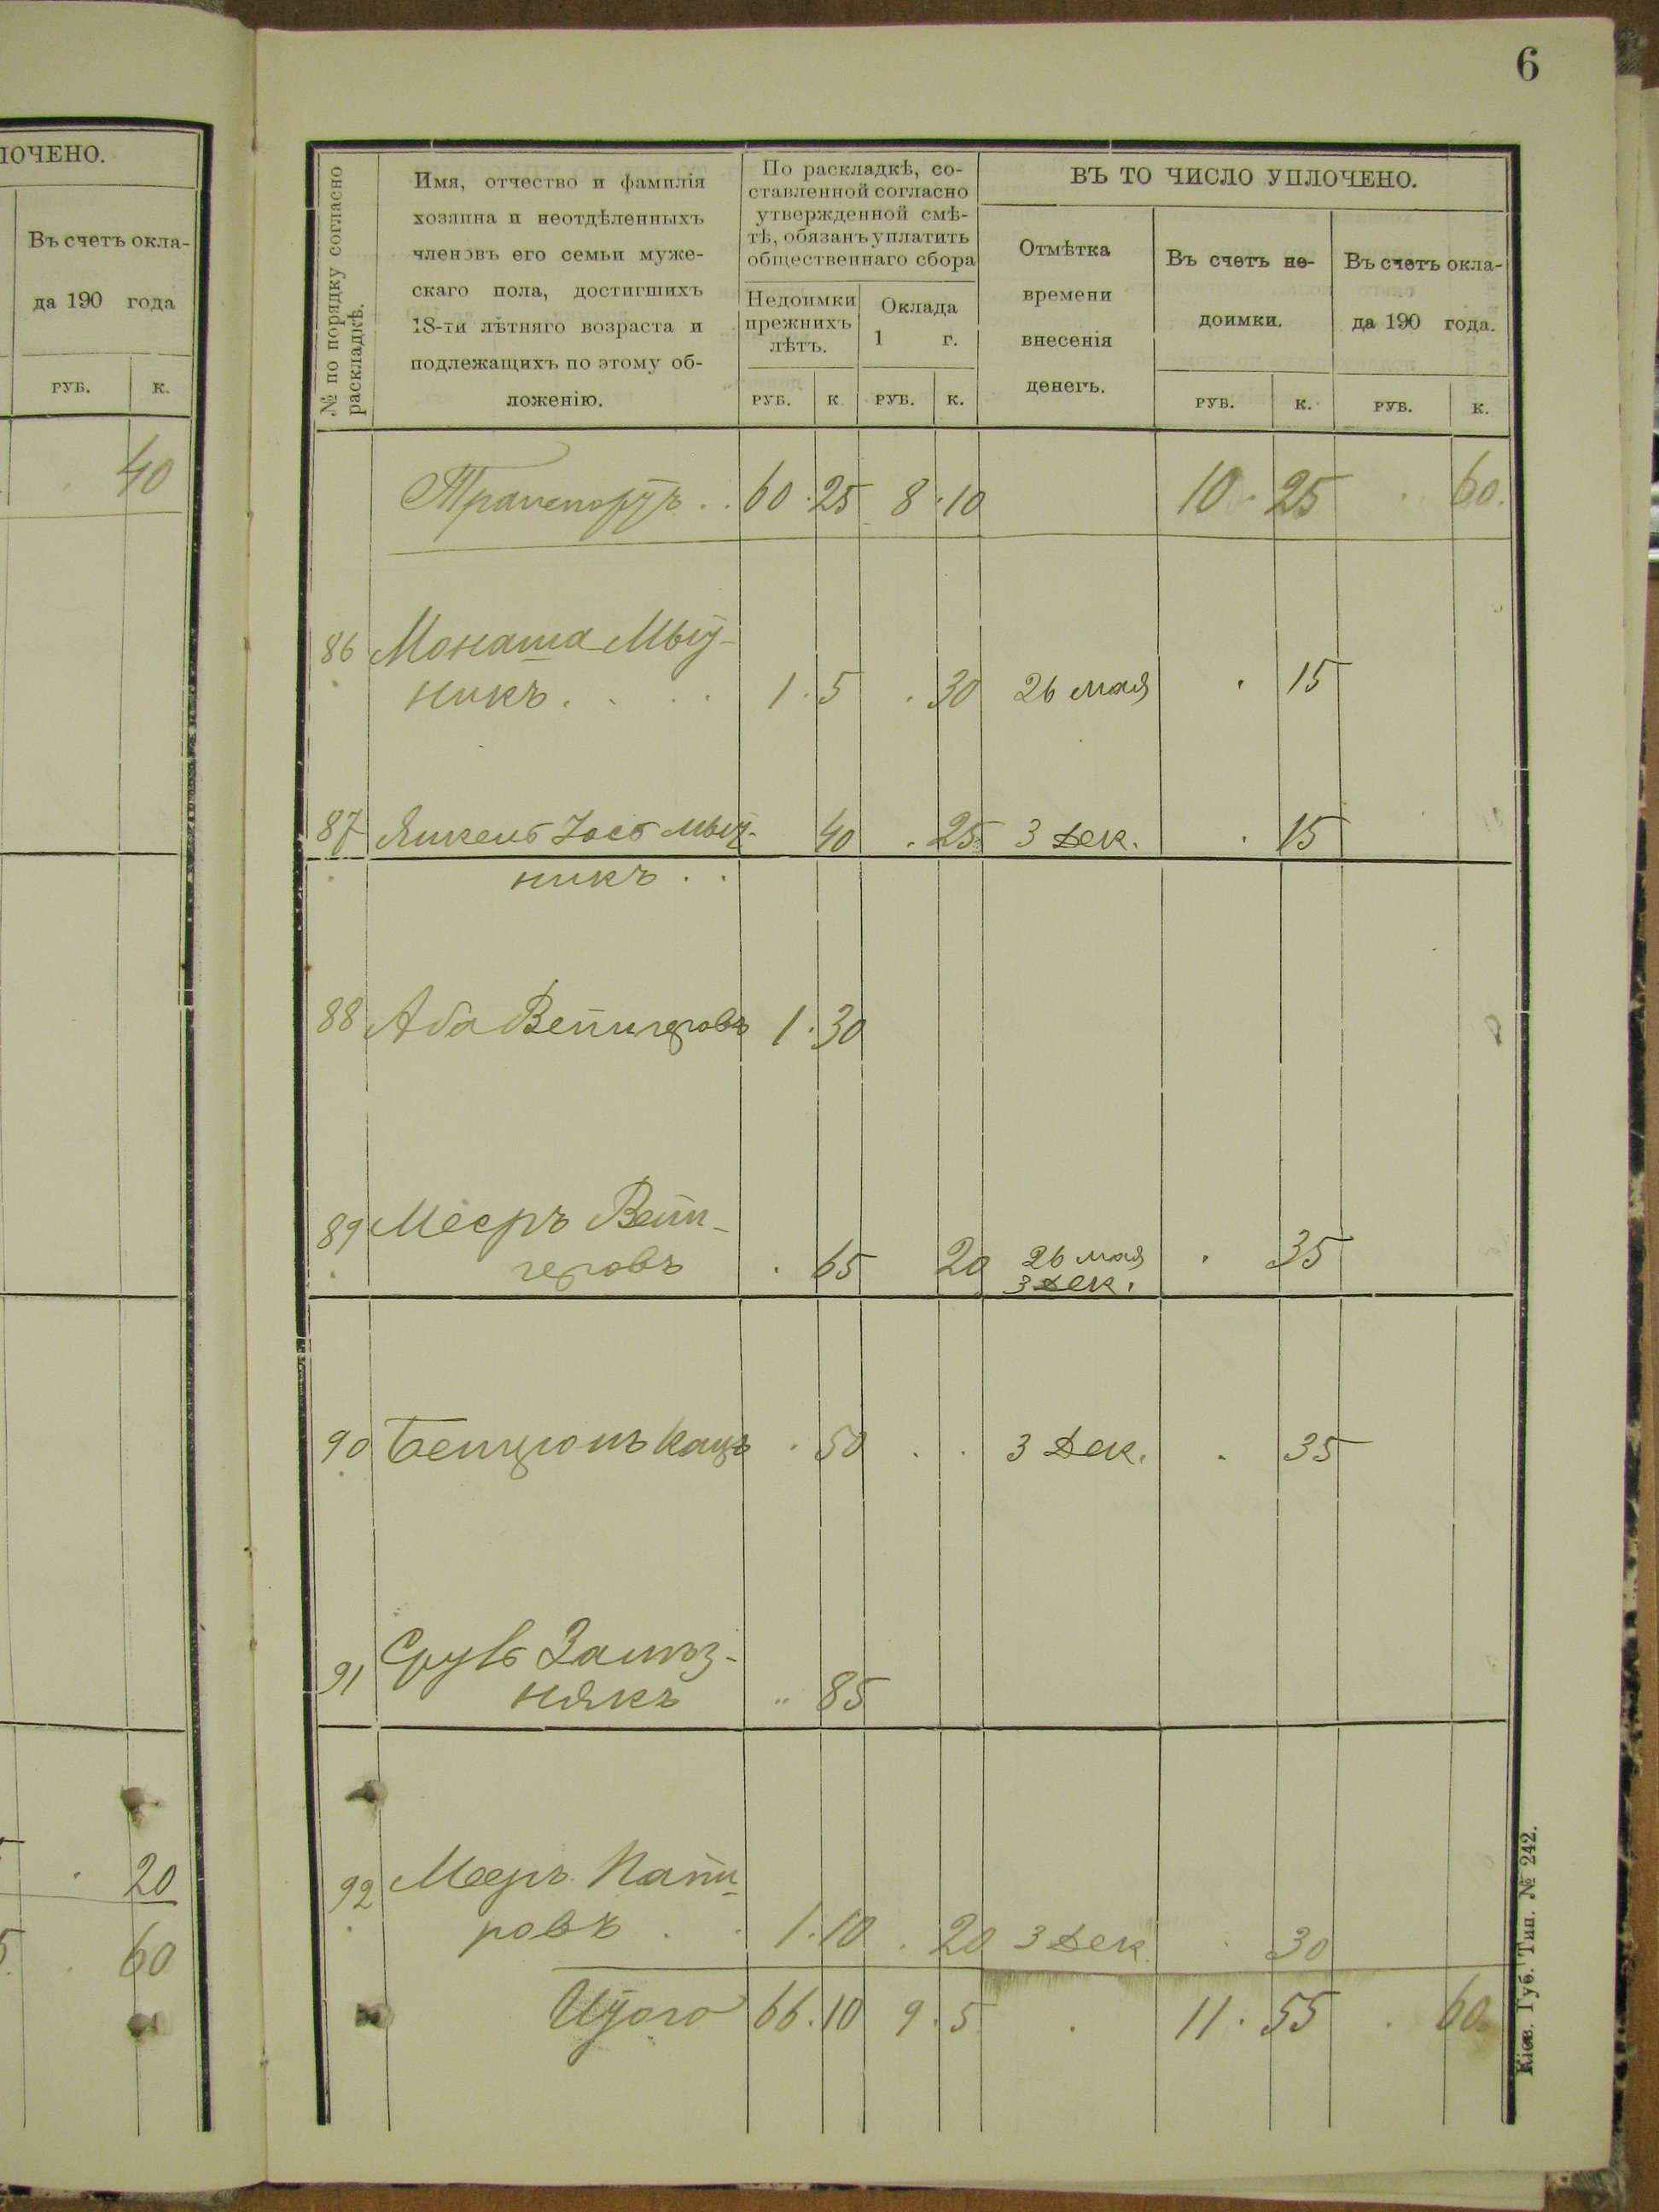 ЛОЧЕНО.
Въ счетъ окла-
да 190 года
РУБ. К.
40
20
60
6
№ по порядку согласно
раскладкѣ.
Имя, отчество и фамилія
хозяина и неотдѣленныхъ
членовъ его семьи муже-
скаго пола, достигшихъ
18-ти лѣтняго возраста и
подлежащихъ по этому об-
ложенію.
По раскладкѣ, со-
ставленной согласно
утвержденной смѣ-
тѣ, обязанъ уплатить
общественнаго сбора
Недоимки
прежнихъ
лѣтъ.
Оклада
1 г.
РУБ. К РУБ. К.
ВЪ ТО ЧИСЛО УПЛОЧЕНО.
Отмѣтка
времени
внесенія
денегъ.
Въ счетъ не-
доимки.
РУБ. К.
Въ счетъ окла-
да 190 года.
РУБ. К.
Транспортъ . . 60 . 25 8 . 10 10 . 25 . 60.
86 Монаша Мыт-
никъ . . . . 1 . 5 . 30 26 мая . 15
87 Янкель Іосъ Мыт- 40 . 25 3 Дек. . 15
никъ . .
88 Аба Вепшровъ 1 . 30
89 Мееръ Веп-
. 65 20 26 мая . 35
3 Дек.
90 Бенціонъ Кацъ . 50 . . 3 Дек. . 35
91 Сруль Зализ-
някъ " 85
92 Мееръ Папи-
ровъ . . 1 . 10 . 20 3 Дек. . 30
Итого 66 . 10 9 . 5 . 11 . 55 . 60.
Кіев. Губ. Тип. № 242.